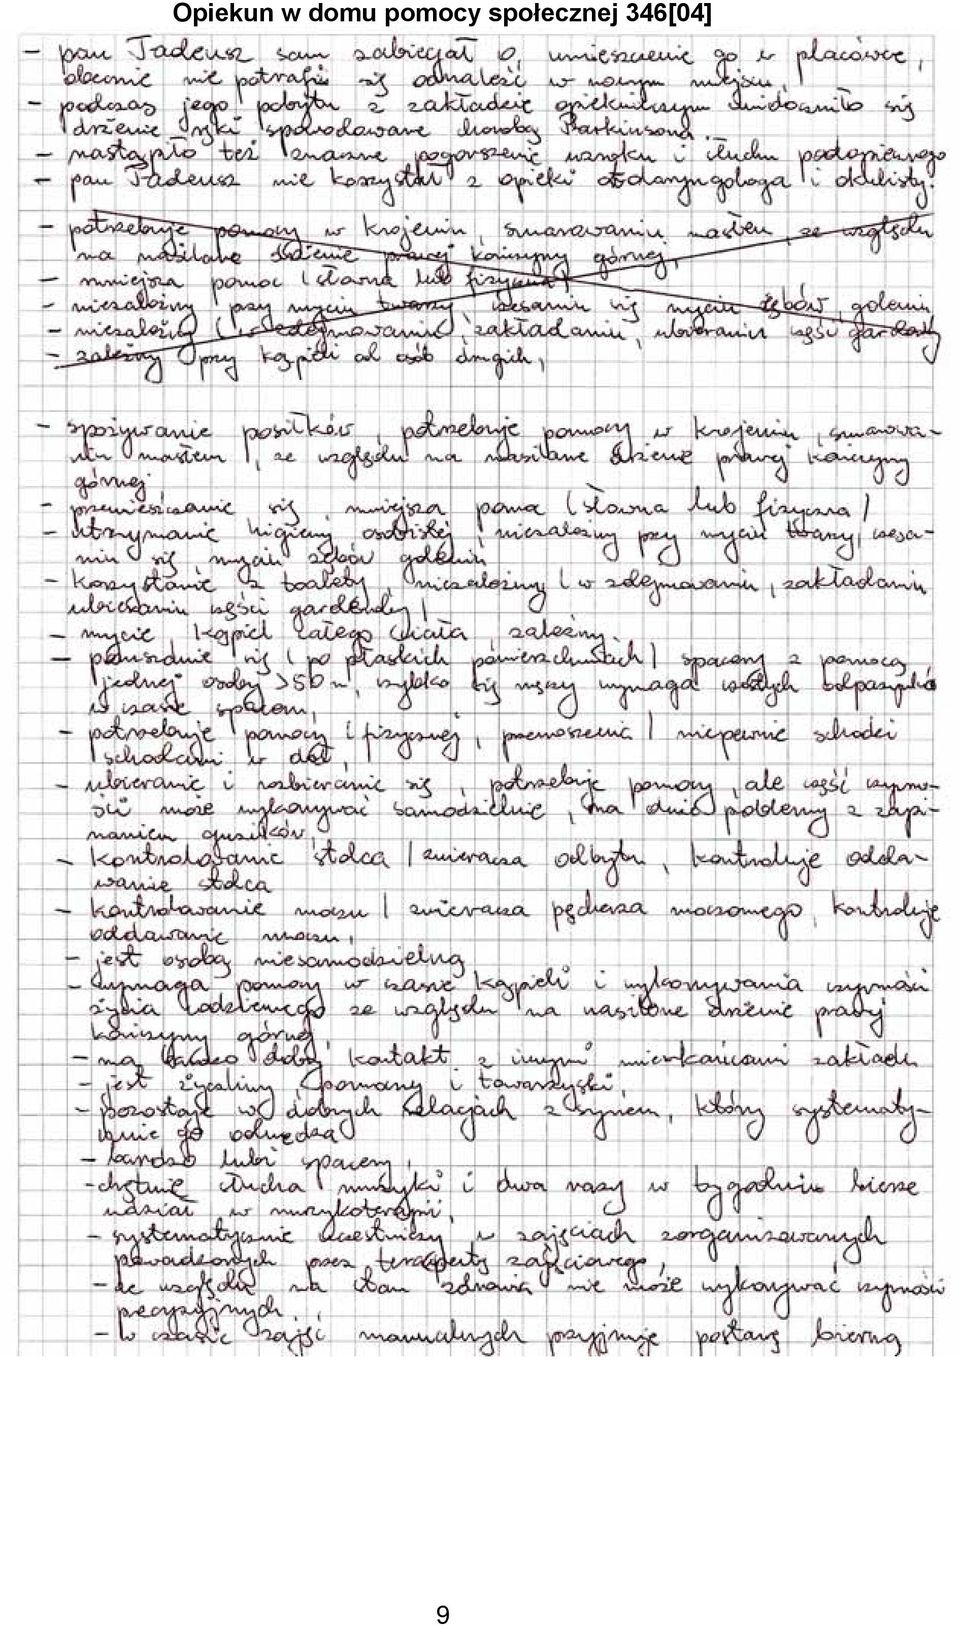 Opiekun w domu pomocy społecznej 346[04]
- pan Tadeusz sam zabiegał o umieszczenie go w placówce,
obecnie nie potrafi się odnaleźć w nowym miejscu,
- podczas jego pobytu z zakładzie opiekuńczym uwidoczniło się
drżenie ręki spowodowane chorobą Parkinsona.
- nastąpiło też znaczne pogorszenie wzroku i słuchu podopiecznego
- pan Tadeusz nie korzystał z opieki otolaryngologa i okulisty.
- potrzebuje pomocy w krojeniu, smarowaniu masłem, ze względu
na nasilane drżenie prawej kończyny górnej,
- mniejsza pomoc (słowna lub fizyczna)
- niezależny przy myciu twarzy, czesaniu się myciu zębów, goleniu
- niezależny (w zdejmowaniu, zakładaniu, ubieraniu części garderoby
- zależny przy kąpieli od osób drugich,
- spożywanie posiłków, potrzebuje pomocy w krojeniu, smarowa-
niu masłem, ze względu na nasilane drżenie prawej kończyny
górnej.
- przemieszczanie się, mniejsza pomoc (słowna lub fizyczna)
- utrzymanie higieny osobistej, niezależny przy myciu twarzy, czesa-
niu się, myciu zębów goleniu
- korzystanie z toalety, niezależny (w zdejmowaniu, zakładaniu
ubieraniu części garderoby)
- mycie, kąpiel całego ciała, zależny.
- poruszanie się (po płaskich powierzchniach) spacery z pomocą
jednej osoby >50 m, szybko się męczy wymaga częstych odpoczynków
w czasie spaceru,
- potrzebuje pomocy (fizycznej, przenoszenia) niepewnie schodzi
schodami w dół,
- ubieranie i rozbieranie się, potrzebuje pomocy, ale część czynno-
ści może wykonywać samodzielnie, ma duże problemy z zapi-
naniem guzików,
- kontrolowanie stolca / zwieracza odbytu, kontroluje odda-
wanie stolca
- kontrolowanie moczu / zwieracza pęcherza moczowego, kontroluje
oddawanie moczu,
- jest osobą niesamodzielną
- wymaga pomocy w czasie kąpieli i wykonywania czynności
życia codziennego ze względu na nasilone drżenie prawej
kończyny górnej,
- ma bardzo dobry kontakt z innymi mieszkańcami zakładu
- jest życzliwy, pomocny i towarzyski,
- pozostaje w dobrych relacjach z synem, który systematy-
cznie go odwiedza
- bardzo lubi spacery,
- chętnie słucha muzyki i dwa razy w tygodniu bierze
udział w muzykoterapii,
- systematycznie uczestniczy w zajęciach zorganizowanych
prowadzonych przez terapeutę zajęciowego,
- ze względu na stan zdrowia nie może wykonywać czynności
precyzyjnych,
- w czasie zajęć manualnych przyjmuje postawę bierną
9